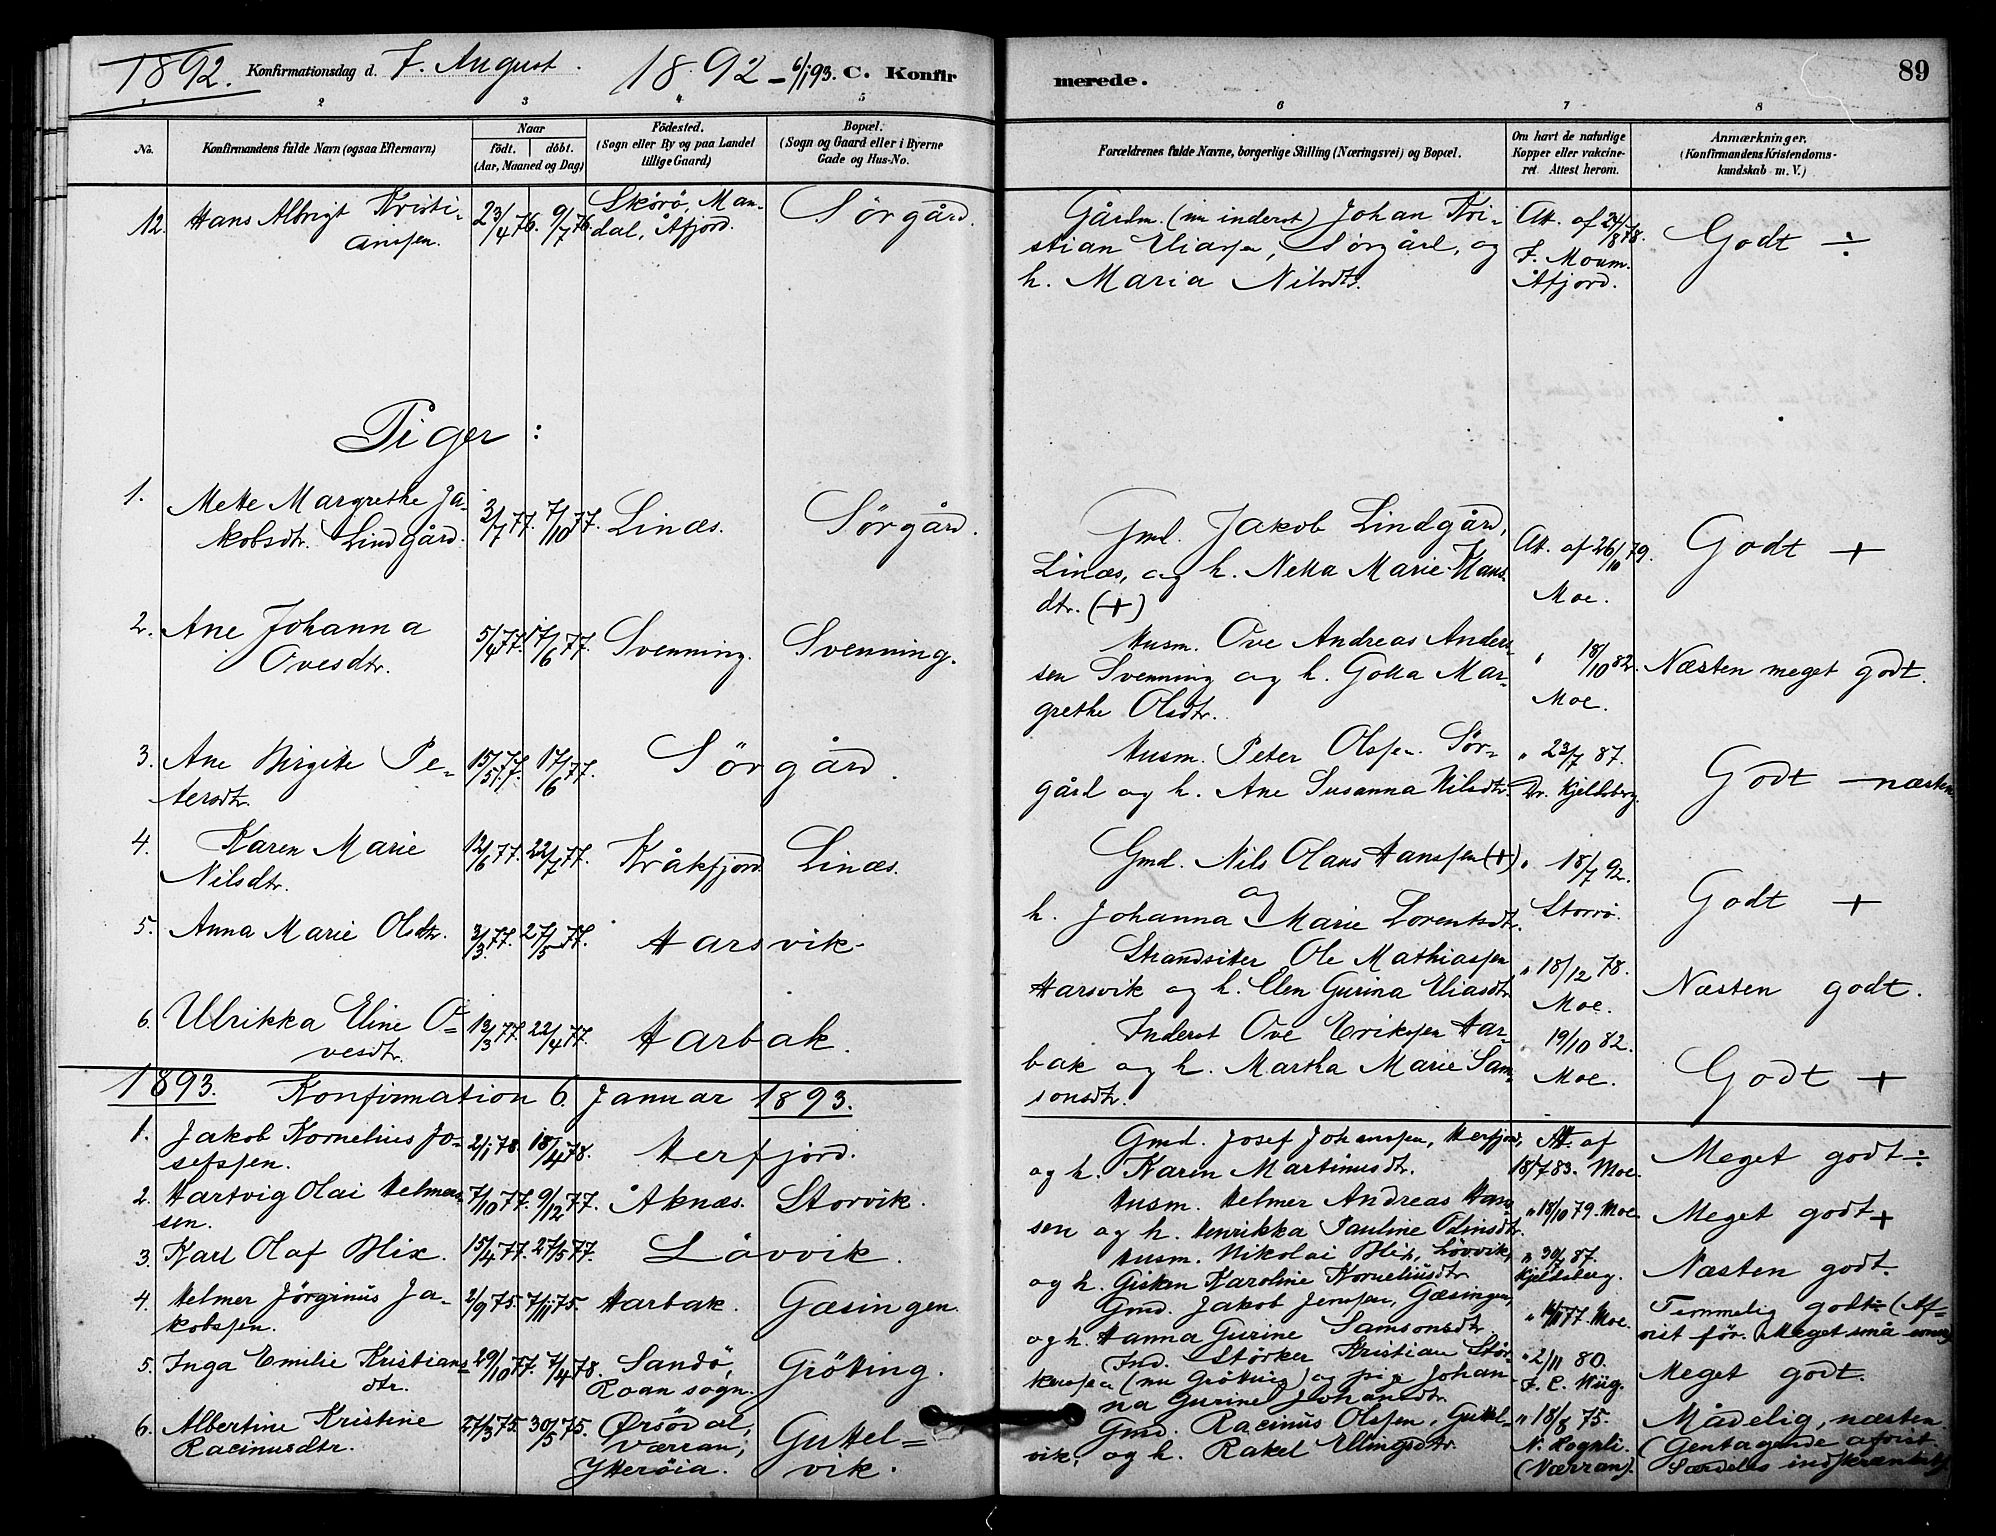 1892. Konfirmationsdag d. 7. August. 1892 – 6/1 93. C. Konfir
merede. 89
1 2 3 4 5
6 7 8
No. Konfirmandens fulde Navn (ogsaa Efternavn) Naar født. døbt. (Aar, Maaned og Dag) Fødested. (Sogn eller By og paa Landet tillige Gaard) Bopæl. (Sogn og Gaard eller i Byerne Gade og Hus-No.
Forældrenes fulde Navne, borgerlige Stilling (Næringsvei) og Bopæl. Om havt de naturlige Kopper eller vakcineret. Attest herom. Anmærkninger. (Konfirmandens Kristendomskundskab m. V.)
12. Hans Albrigt Kristi-
anssen. 23/4 76. 9/7 76. Skörö, Man-
dal, Åfjord. Sörgård.
Gårdm. (nu inderst) Johan Kri-
stian Eliassen, Sörgård, og
h. Maria Nilsdtr.
Att. af 24/8 78.
F. Moum.
Åfjord.
Godt ÷
Piger :
1. Mette Margrethe Ja-
kobsdtr. Lindgård. 2/7 77. 7/10 77. Linæs. Sörgård.
Gmd. Jakob Lindgård,
Linæs, og h. Netta Marie Hans-
dtr. (+)
Att. af 26/10 79.
Moe.
Godt +
2. Ane Johanna
Ovesdtr. 5/4 77. 17/6 77. Svenning. Svenning.
Husm. Ove Andreas Anders-
sen Svenning og h. Golla Mar-
grethe Olsdtr.
" 18/10 82.
Moe.
Næsten meget godt.
3. Ane Birgite Pe-
tersdtr. 15/5 77. 17/6 77. Sörgård.
Husm. Peter Olssen Sör-
gård og h. Ane Susanna Nilsdtr.
" 23/7 87.
Dr. Kjeldsberg.
Godt — næsten
4. Karen Marie
Nilsdtr. 12/6 77. 22/7 77. Kråkfjord. Linæs.
Gmd. Nils Olaus Hanssen (+)
og
h. Johanna Marie Lorentsdtr.
" 18/7 92.
Storrö.
Godt +
5. Anna Marie Olsdtr. 3/3 77. 27/5 77. Harsvik.
Strandsitter Ole Mathiassen
Harsvik og h. Elen Gurina Eliasdtr.
" 18/12 78.
Moe.
Næsten godt.
6. Ulrikka Eline O-
vesdtr. 13/3 77. 22/4 77. Harbak.
Inderst Ove Erikssen Har-
bak og h. Martha Marie Sam-
sonsdtr.
" 19/10 82.
Moe.
Godt +
1893. Konfirmation 6. Januar 1893.
1. Jakob Kornelius Jo-
sefssen. 2/1 78. 18/4 78. Herfjord.
Gmd. Josef Johanssen, Herfjord,
og h. Karen Martinusdtr.
Att. af
18/7 83. Moe.
Meget godt ÷
2. Hartvig Olai Helmer-
sen. 7/10 77. 9/12 77. Åknæs. Storvik.
Husm. Helmer Andreas Han-
sen og h. Henrikka Pauline
" 18/10 79. Moe.
Meget godt +
3. Karl Olaf Blix. 15/4 77. 27/5 77. Lövvik.
Husm. Nikolai Blix, Lövvik,
og h. Gisken Karoline Korneliusdtr.
" 30/7 87.
Kjeldsberg.
Næsten godt.
4. Helmer Jörginus Ja-
kobssen. 2/9 75. 7/11 75. Harbak. Gæsingen.
Gmd. Jakob Jenssen, Gæsingen,
og h. Hanna Gurine Samsonsdtr.
" 77. Moe.
Temmelig godt (Af-
vist för. Meget små evner)
5. Inga Emilie Kristians-
dtr. 29/10 77. 7/4 78. Sandö,
Roan sogn. Gröting.
Ind. Störker Kristian Stör-
kerssen (nu Gröting) og pige Johan-
na Gurine Johansdtr.
" 2/11 80.
F. C. Wiig.
Meget godt.
6. Albertine Kristine
Racinusdtr. 27/3 75. 30/5 75. Ørsödal,
Værran,
Ytteröia. Guttel=
vik.
Gmd. Racinus Olssen, Guttel-
vik, og h. Rakel Ellingsdtr.
" 18/8 75.
N. Rognli.
(Værran).
Mådelig, næsten.
(Gentagende afvist.
Særdeles indskrænket)